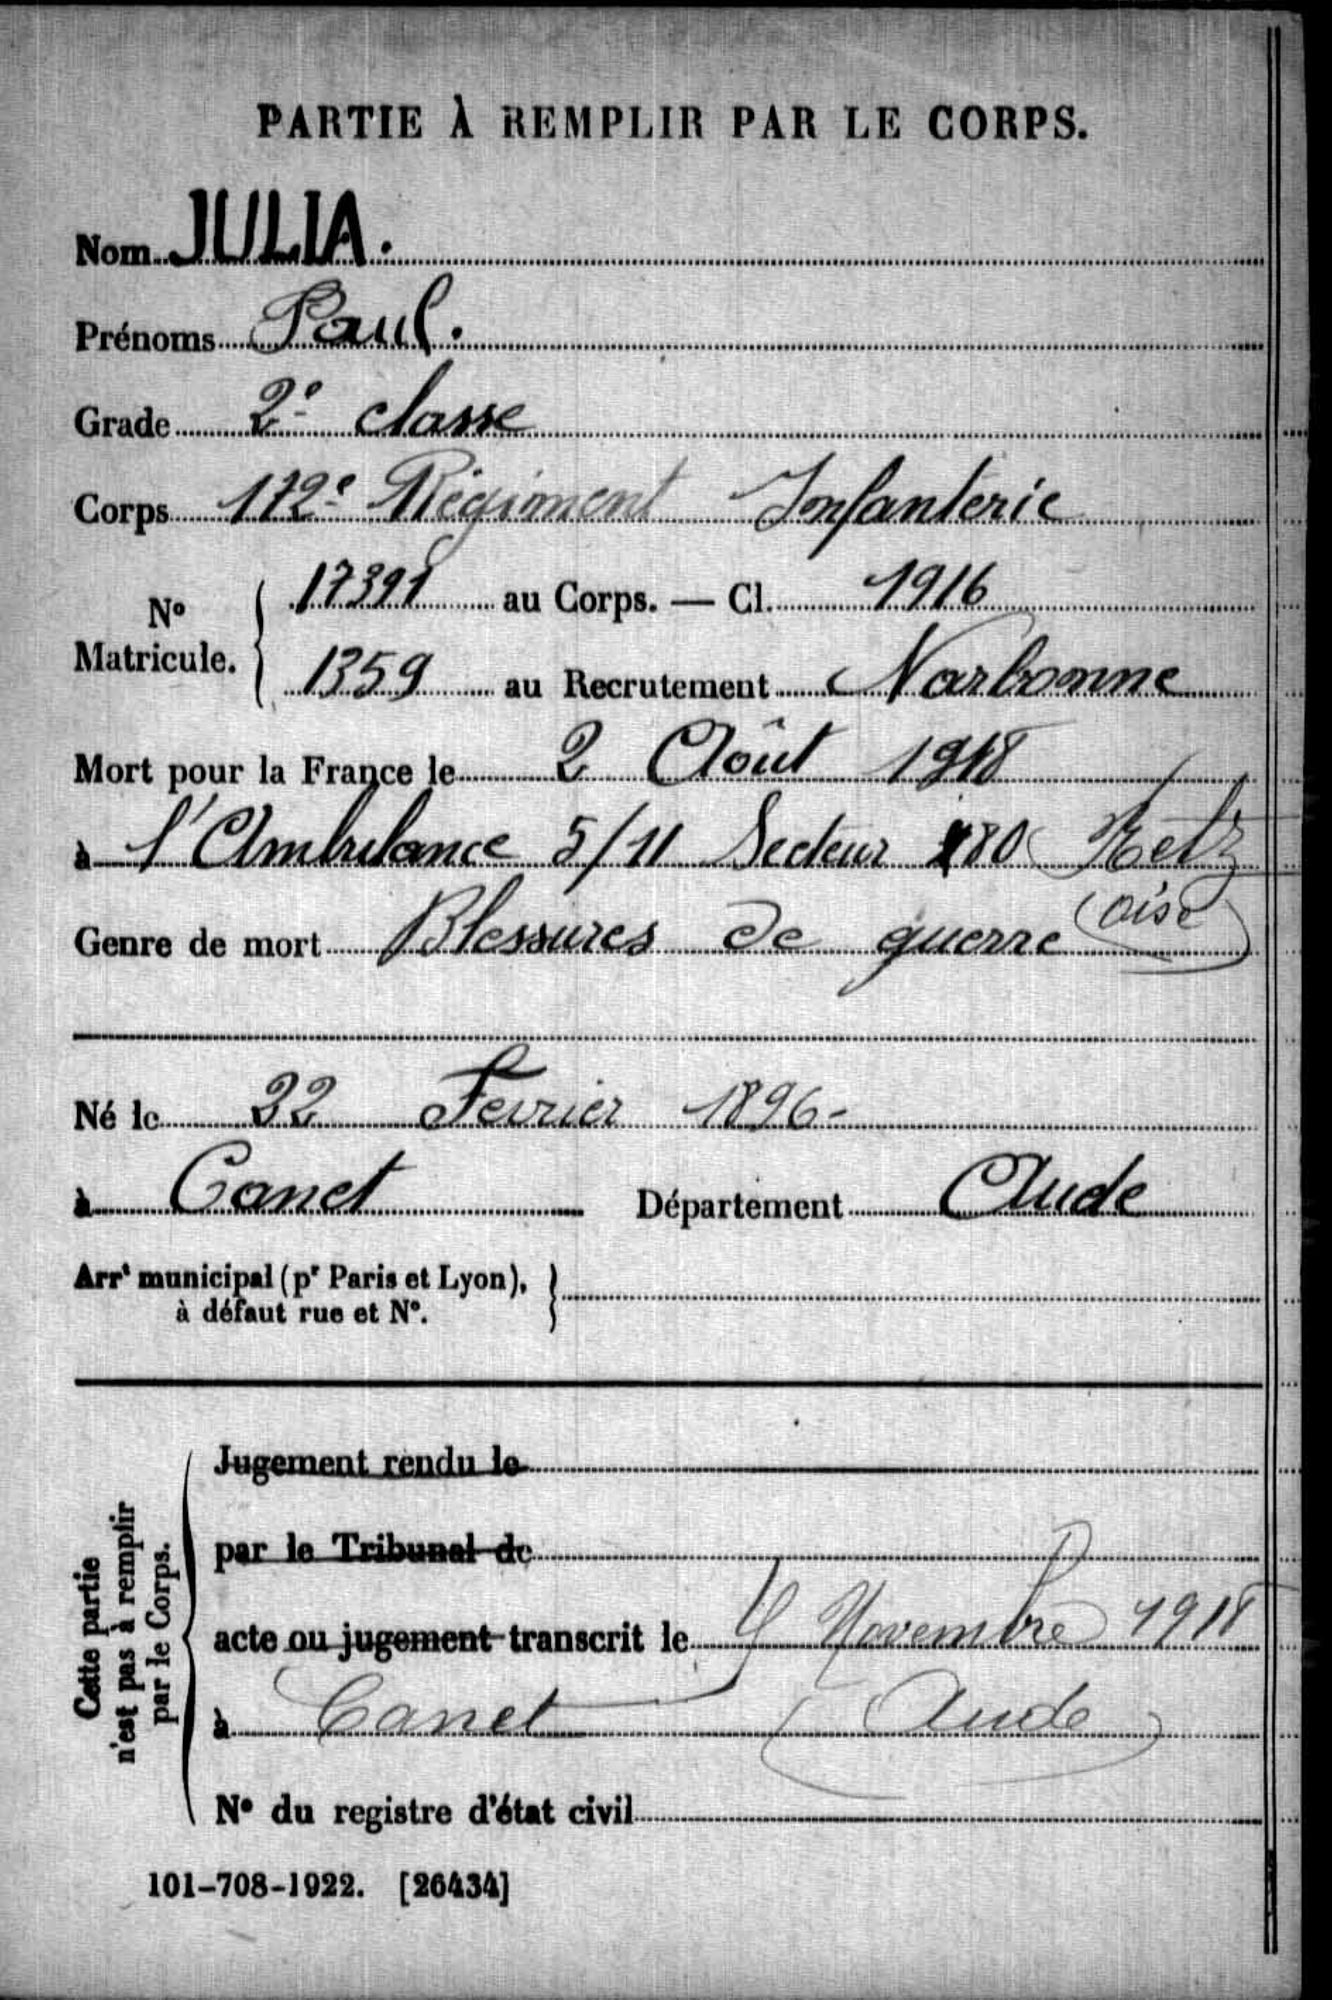 PARTIE À REMPLIR PAR LE CORPS.
Nom JULIA.
Prénoms Paul.
Grade 2e classe
Corps 172e Régiment Infanterie
No Matricule. 17391 au Corps. — Cl. 1916
1359 au Recrutement Narbonne
Mort pour la France le 2 Août 1918
à l'Ambulance 5/11 Secteur 180 Retz
(Oise)
Genre de mort Blessures de guerre
Né le 22 Fevrier 1896-
à Canet Département Aude
Arrt municipal (pr Paris et Lyon),
à défaut rue et No.
Cette partie
n'est pas à remplir
par le Corps.
Jugement rendu le
par le Tribunal de
acte ou jugement transcrit le 4 Novembre 1918
à Canet (Aude)
No du registre d'état civil
101-708-1922. [26434]